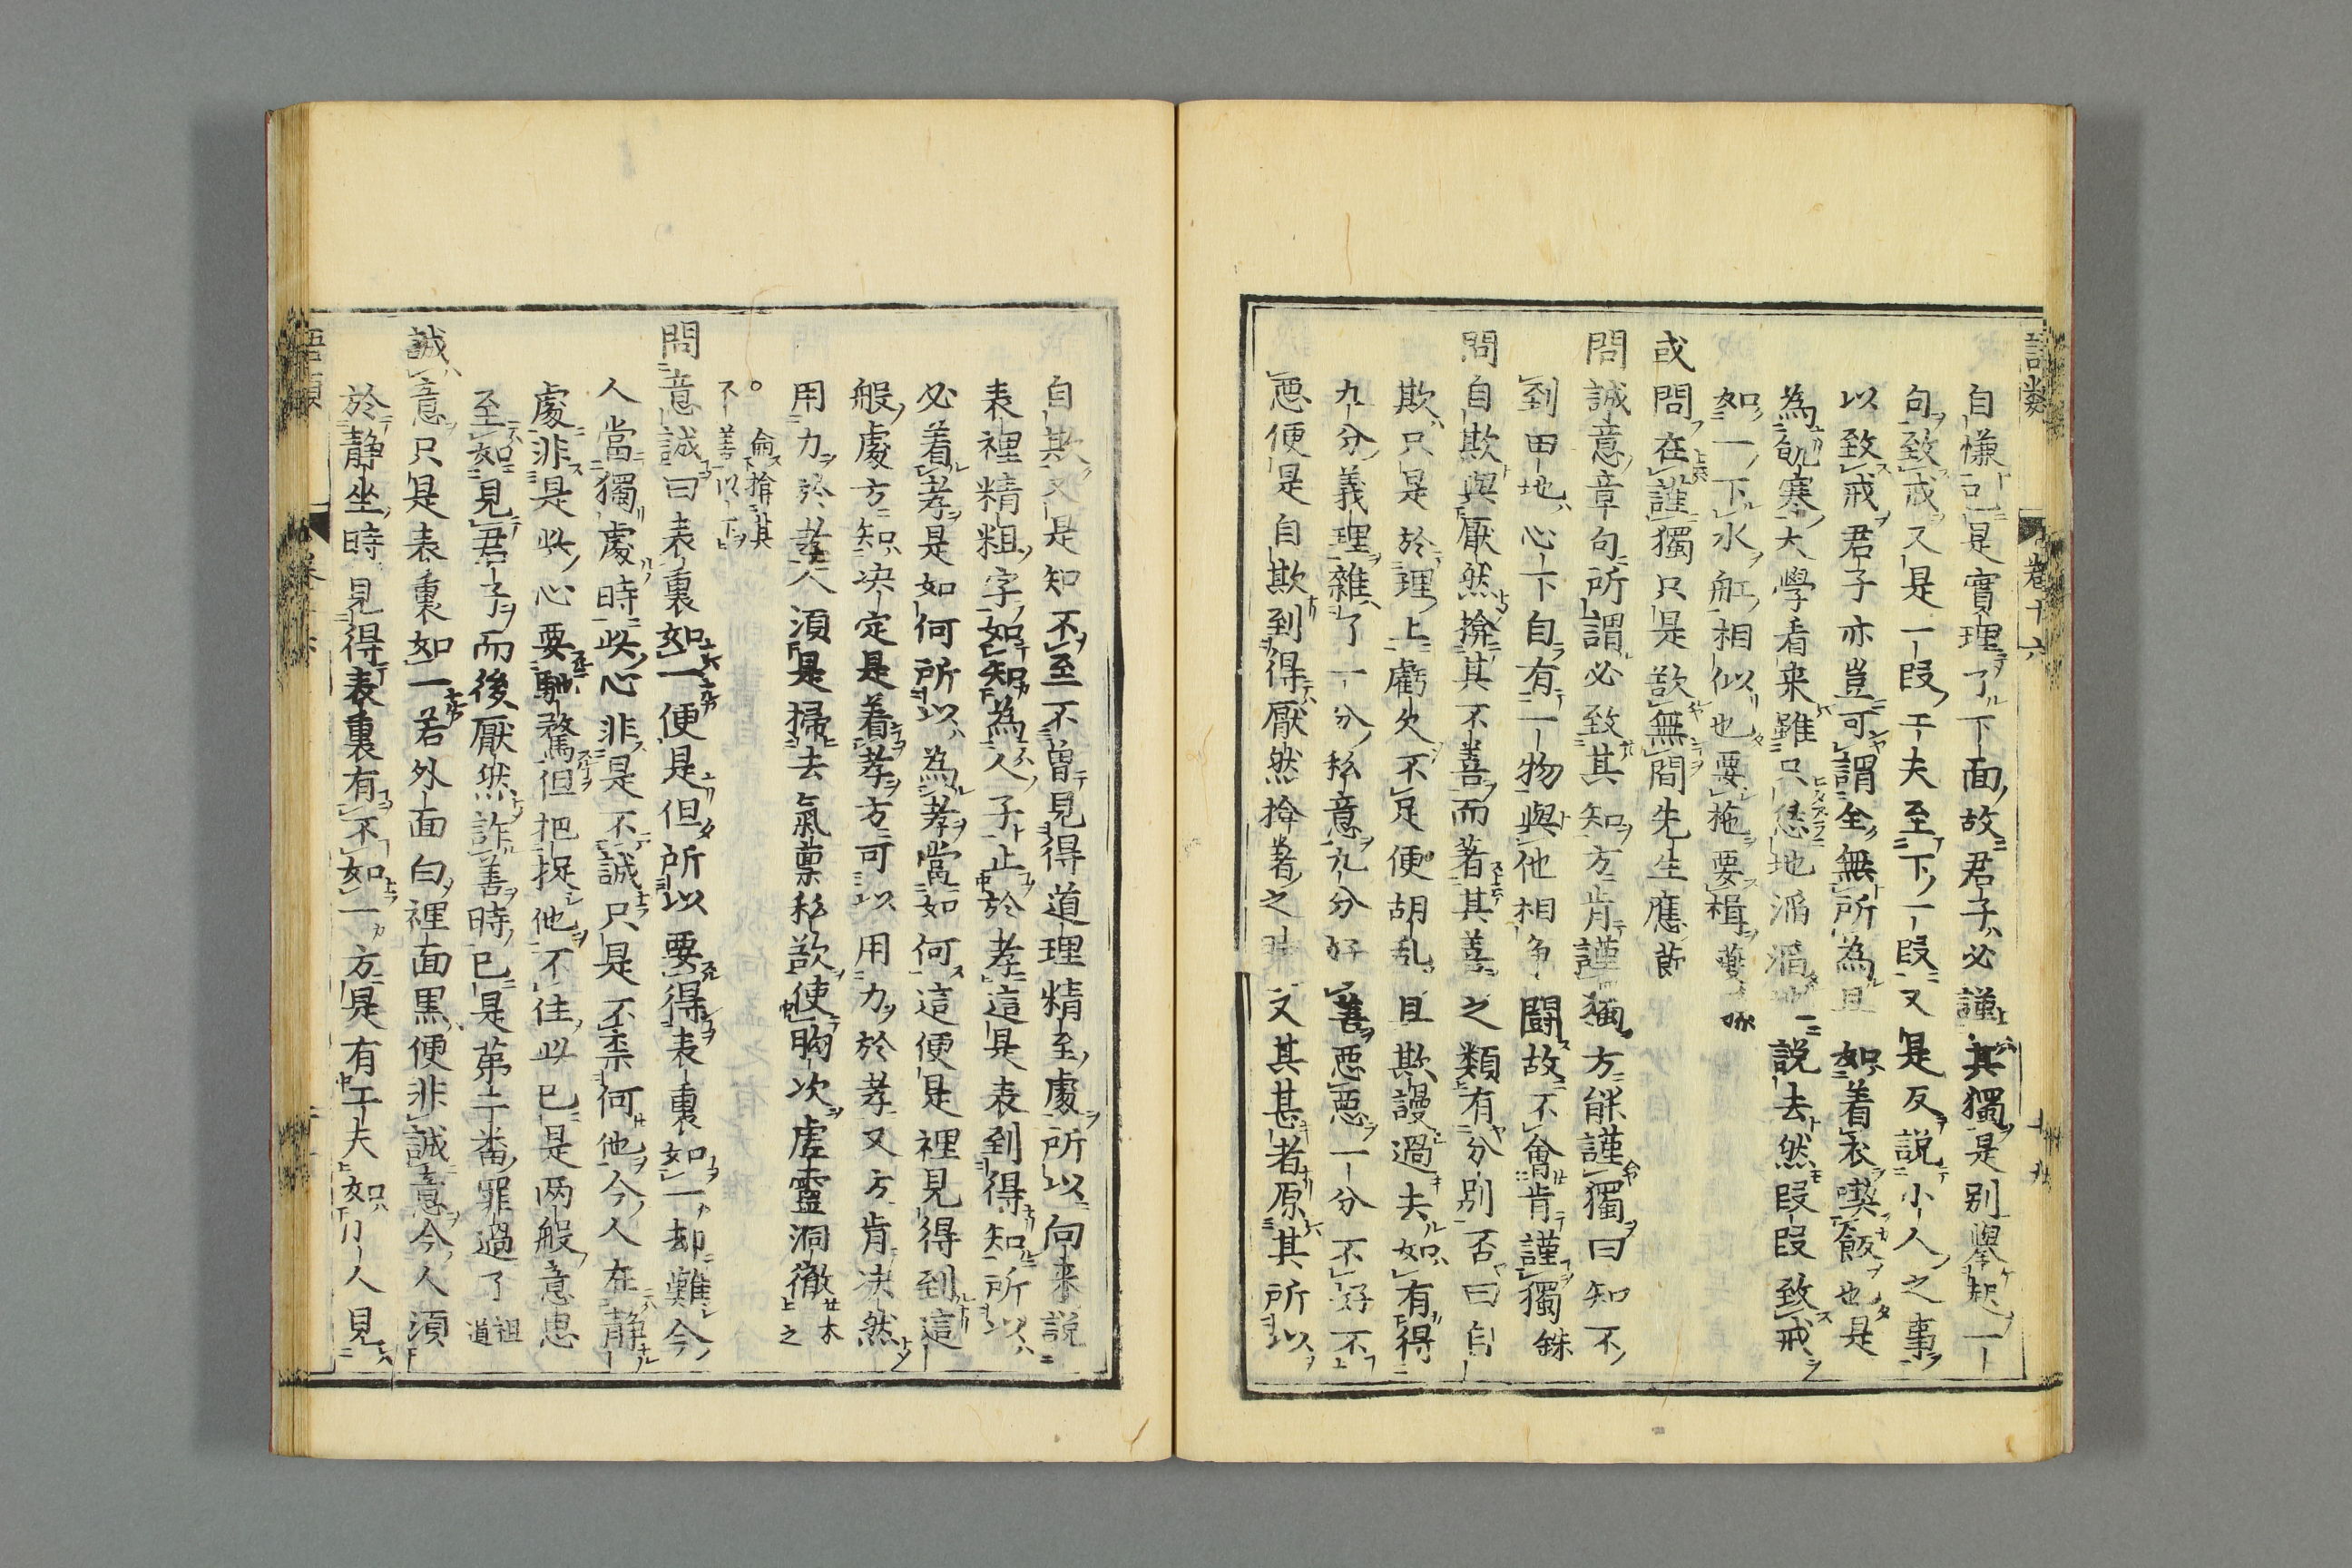 語類 卷十六 十九
自慊已是實理了下面故君子必謹其獨是別舉起一
句致戒又是一段工夫至下一段又是反說小人之事
以致戒君子亦豈可謂全無所為且如着衣喫飯也是
為飢寒大學看来雖只恁地滔滔地說去然段段致戒
如一下水舡相似也要柂要楫
或問在謹獨只是欲無間先生應節
問誠意章句所謂必致其知方肯謹獨方能謹獨曰知不
到田地心下自有一物與他相争鬪故不會肯謹獨銖
問自欺與厭然揜其不善而著其善之類有分別否曰自
欺只是於理上虧欠不足便胡乱且欺謾過去如有得
九分義理雜了一分私意九分好善惡惡一分不好不
惡便是自欺到得厭然揜著之時又其甚者原其所以
自欺又是知不至不曾見得道理精至處所以向来說
表裡精粗字如知為人子止於孝這是表到得知所以
必着孝是如何所以為孝當如何這便是裡見得到這
般處方知决定是着孝方可以用力於孝又方肯决然
用力於孝人須是掃去氣禀私欲使胸次虚靈洞徹木之
○ 僉揜其不善以下
問意誠曰表裏如一便是但所以要得表裏如一却難今
人當獨處時此心非是不誠只是不柰何他今人在静
處非是此心要馳騖但把捉他不住此已是两般意思
至如見君子而後厭然詐善時已是第二畨罪過了祖道
誠意只是表裏如一若外面白裡面黒便非誠意今人須
於静坐時見得表裏有不如一方是有工夫如小人見
語類